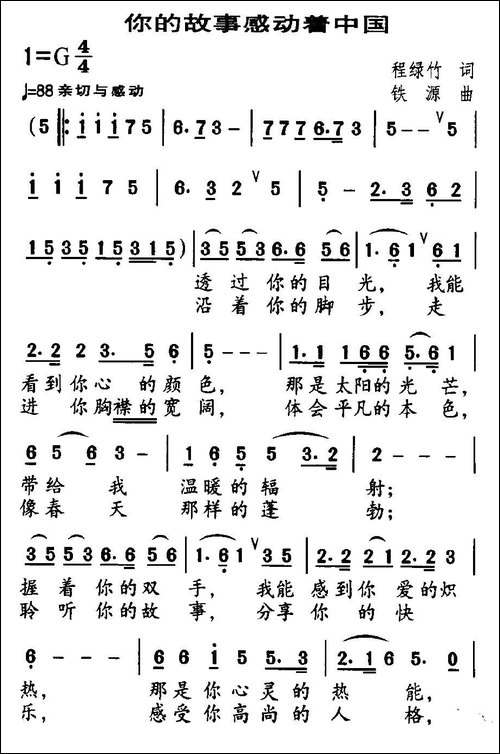 你的故事感动着中国
1=G 4/4
程绿竹 词
♩=88 亲切与感动
铁 源 曲
(5 ‖: i i i i 7 5 | 6. 7 3 - | 7 7 7 7 6. 7 3 | 5 - - ∨ 5 |
i i i 7 5 | 6. 3 2 ∨ 5 | 5 - 2. 3 6 2 |
1 5 3 5 1 5 3 1 5 ) | 3 5 5 3 6. 6 5 6 | 1. 6 1 ∨ 6 1 |
透 过 你 的 目 光， 我能
沿 着 你 的 脚 步， 走
2. 2 2 3. 5 6 | 5 - - - | 1. 1 1 6 6 5. 6 1 |
看到你心 的 颜 色， 那 是 太阳的 光 芒，
进 你胸襟 的 宽 阔， 体 会 平凡的 本 色，
6 5 6 3 - | 1 6 5 5 3. 2 | 2 - - - |
带给 我 温 暖 的 辐 射；
像春 天 那 样 的 蓬 勃；
3 5 5 3 6. 6 5 6 | 1. 6 1 ∨ 3 5 | 1. 2 3 2. 2 2 3 |
握 着 你 的 双 手， 我能 感 到你 爱 的炽
聆 听 你 的 故 事， 分享 你 的 快
6 - - - | 6 6 i 5 5. 3 | 2. 1 6 5. 0 |
热， 那是你 心灵的 热 能，
乐， 感受你 高尚的 人 格，